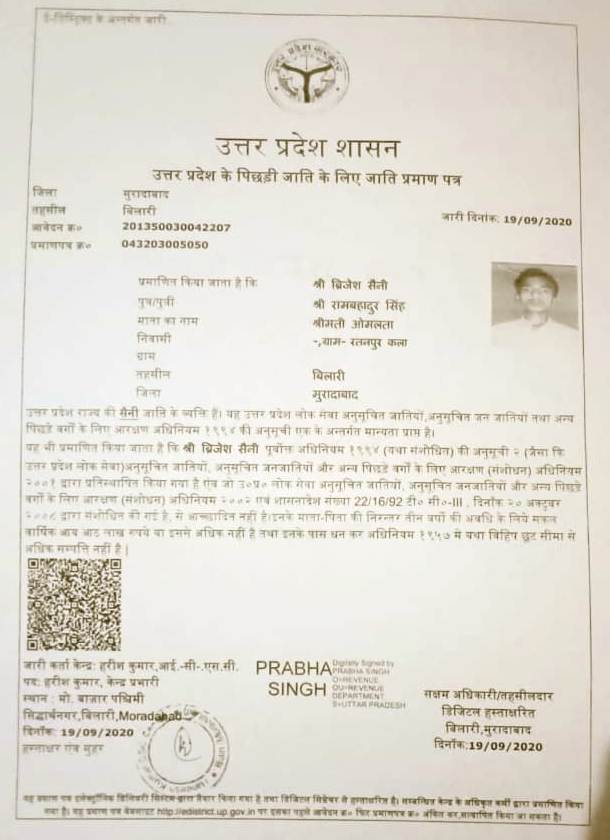 ई-डिस्ट्रिक्ट के अन्तर्गत जारी
उत्तर प्रदेश शासन
उत्तर प्रदेश के पिछड़ी जाति के लिए जाति प्रमाण पत्र
जिला मुरादाबाद
तहसील बिलारी
आवेदन क्र० 201350030042207
जारी दिनांक: 19/09/2020
प्रमाणपत्र क्र० 043203005050
प्रमाणित किया जाता है कि श्री ब्रिजेश सैनी
पुत्र/पुत्री श्री रामबहादुर सिंह
माता का नाम श्रीमती ओमलता
निवासी -,ग्राम- रतनपुर कला
ग्राम
तहसील बिलारी
जिला मुरादाबाद
उत्तर प्रदेश राज्य की सैनी जाति के व्यक्ति हैं। यह उत्तर प्रदेश लोक सेवा अनुसूचित जातियों,अनुसूचित जन जातियों तथा अन्य
पिछड़े वर्गों के लिए आरक्षण अधिनियम १९९४ की अनुसूची एक के अन्तर्गत मान्यता प्राप्त है।
यह भी प्रमाणित किया जाता है कि श्री ब्रिजेश सैनी पूर्वोक्त अधिनियम १९९४ (यथा संशोधित) की अनुसूची २ (जैसा कि
उत्तर प्रदेश लोक सेवा)अनुसूचित जातियों, अनुसूचित जनजातियों और अन्य पिछड़े वर्गों के लिए आरक्षण (संशोधन) अधिनियम
२००१ द्वारा प्रतिस्थापित किया गया है एंव जो उ०प्र० लोक सेवा अनुसूचित जातियों, अनुसूचित जनजातियों और अन्य पिछड़े
वर्गों के लिए आरक्षण (संशोधन) अधिनियम २००२ एवं शासनादेश संख्या 22/16/92 टी० सी०-III , दिनाँक २० अक्टूबर
२००८ द्वारा संशोधित की गई है, से आच्छादित नहीं है।इनके माता-पिता की निरन्तर तीन वर्षों की अवधि के लिये सकल
वार्षिक आय आठ लाख रुपये या इससे अधिक नहीं है तथा इनके पास धन कर अधिनियम १९५७ में यथा विहित छूट सीमा से
अधिक सम्पत्ति नहीं है |
जारी कर्ता केन्द्र: हरीश कुमार,आई.-सी-.एस.सी.
पद: हरीश कुमार, केन्द्र प्रभारी
स्थान : मो. बाजार पश्चिमी
सिद्धार्थनगर,बिलारी,Moradabad
दिनाँक: 19/09/2020
हस्ताक्षर एंव मुहर
PRABHA
SINGH
Digitally Signed by
PRABHA SINGH
O=REVENUE
OU=REVENUE
DEPARTMENT
S=UTTAR PRADESH
सक्षम अधिकारी/तहसीलदार
डिजिटल हस्ताक्षरित
बिलारी,मुरादाबाद
दिनाँक:19/09/2020
यह प्रमाण पत्र इलेक्ट्रॉनिक डिलिवरी सिस्टम द्वारा तैयार किया गया है तथा डिजिटल सिग्नेचर से हस्ताक्षरित है। सम्बन्धित केन्द्र के अधिकृत कर्मी द्वारा प्रमाणित किया
गया है। यह प्रमाण पत्र वेबसाइट http://edistrict.up.gov.in पर इसका पहले आवेदन क्र० फिर प्रमाणपत्र क्र० अंकित कर,सत्यापित किया जा सकता है।